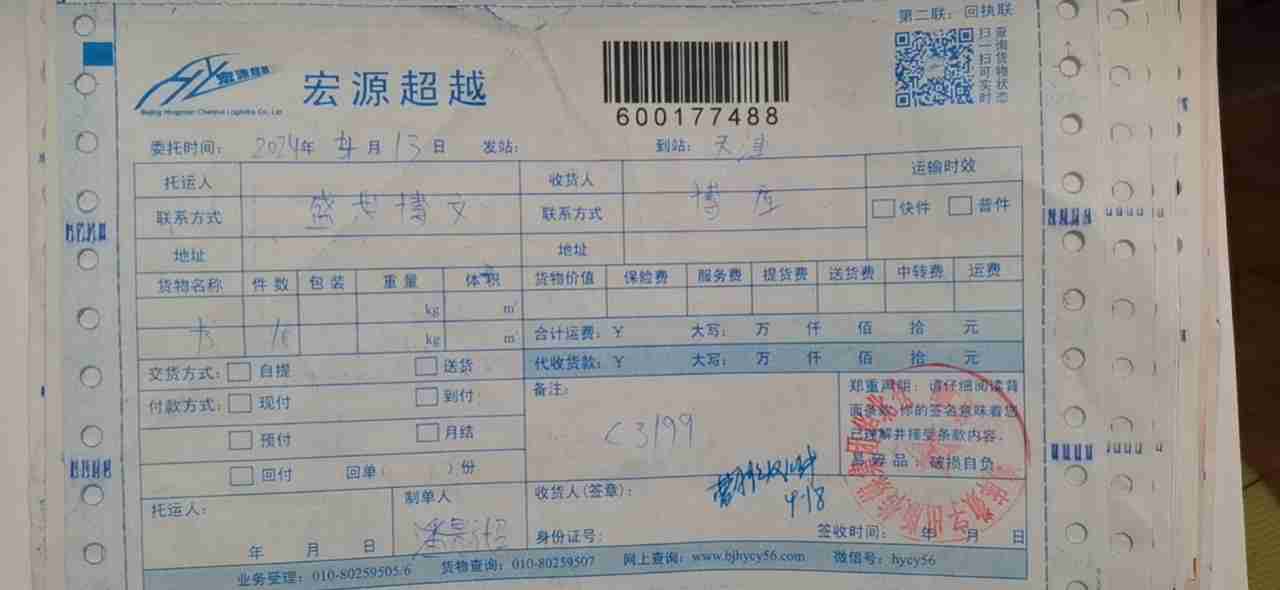 第二联：回执联
扫一扫可实时
查询货物状态
宏源超越
宏源超越
600177488
委托时间： 2024年 4月 13日 发站： 到站： 天津
托运人 收货人 运输时效
盛世博文 博库
联系方式 联系方式 快件 普件
地址 地址
货物名称 件数 包装 重量 体积 货物价值 保险费 服务费 提货费 送货费 中转费 运费
kg m³
书 kg m³ 合计运费：¥ 大写： 万 仟 佰 拾 元
交货方式： 自提 送货 代收货款：¥ 大写： 万 仟 佰 拾 元
付款方式： 现付 到付 备注：
预付 月结
回付 回单（ ）份
<3199
郑重声明：请仔细阅读背
面条款，你的签名意味着您
已理解并接受条款内容。
易碎品：破损自负
托运人： 制单人 收货人（签章）：
4-18
年 月 日 身份证号： 签收时间： 年 月 日
业务受理：010-80259505/6 货物查询：010-80259507 网上查询：www.bjhycy56.com 微信号：hycy56